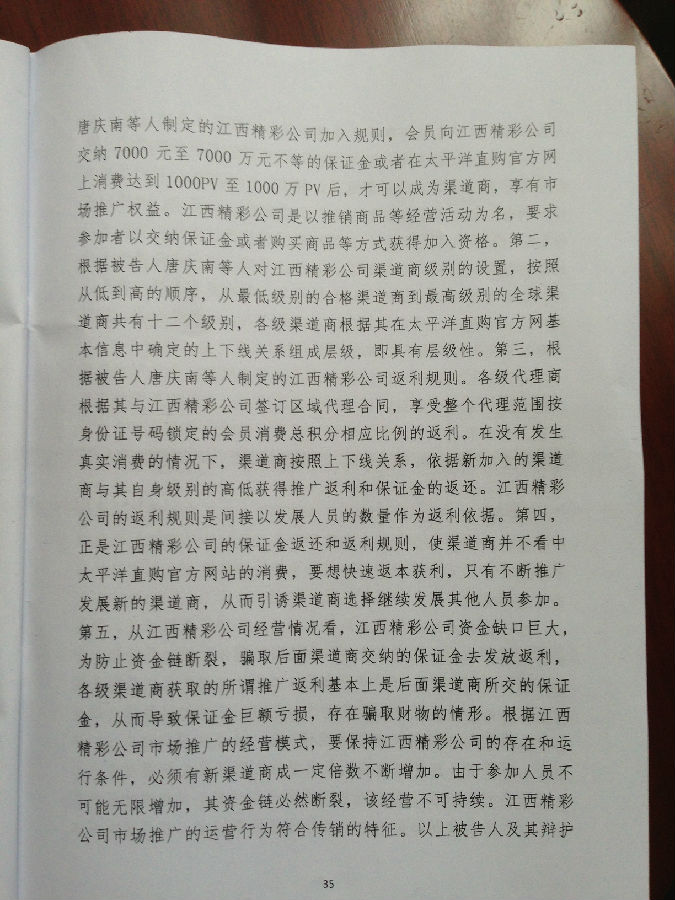 唐庆南等人制定的江西精彩公司加入规则，会员向江西精彩公司
交纳7000 元至 7000 万元不等的保证金或者在太平洋直购官方网
上消费达到 1000PV 至 1000 万 PV 后，才可以成为渠道商，享有市
场推广权益。江西精彩公司是以推销商品等经营活动为名，要求
参加者以交纳保证金或者购买商品等方式获得加入资格。第二，
根据被告人唐庆南等人对江西精彩公司渠道商级别的设置，按照
从低到高的顺序，从最低级别的合格渠道商到最高级别的全球渠
道商共有十二个级别，各级渠道商根据其在太平洋直购官方网基
本信息中确定的上下线关系组成层级，即具有层级性。第三，根
据被告人唐庆南等人制定的江西精彩公司返利规则。各级代理商
根据其与江西精彩公司签订区域代理合同，享受整个代理范围按
身份证号码锁定的会员消费总积分相应比例的返利。在没有发生
真实消费的情况下，渠道商按照上下线关系，依据新加入的渠道
商与其自身级别的高低获得推广返利和保证金的返还。江西精彩
公司的返利规则是间接以发展人员的数量作为返利依据。第四，
正是江西精彩公司的保证金返还和返利规则，使渠道商并不看中
太平洋直购官方网站的消费，要想快速返本获利，只有不断推广
发展新的渠道商，从而引诱渠道商选择继续发展其他人员参加。
第五，从江西精彩公司经营情况看，江西精彩公司资金缺口巨大，
为防止资金链断裂，骗取后面渠道商交纳的保证金去发放返利，
各级渠道商获取的所谓推广返利基本上是后面渠道商所交的保证
金，从而导致保证金巨额亏损，存在骗取财物的情形。根据江西
精彩公司市场推广的经营模式，要保持江西精彩公司的存在和运
行条件，必须有新渠道商成一定倍数不断增加。由于参加人员不
可能无限增加，其资金链必然断裂，该经营不可持续。江西精彩
公司市场推广的运营行为符合传销的特征。以上被告人及其辩护
35